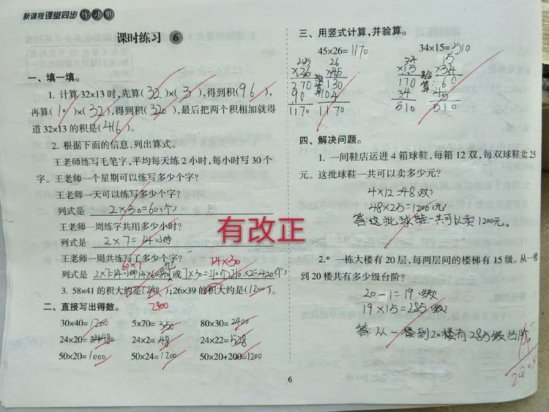 新课程课堂同步练习册
课时练习 6
一、填一填。
1. 计算32×13时,先算(32)×(3),得到积(96),
再算(10)×(32),得到积(320),最后把两个积相加就得
道32×13的积是(416)。
2. 根据下面的信息,列出算式。
王老师练写毛笔字,平均每天练2小时,每小时写30个
字。王老师一个星期可以练写多少个字?
王老师一天可以练写多少个字?
列式是 2×30=60(个)
王老师一周练字共用多少小时?
列式是 2×7=14(小时)
王老师一周共练写了多少个字? 14×30
列式是
3. 58×41的积大约是( ),26×39的积大约是( )
2400
二、直接写出得数。
30×40=1200 5×70=350 80×30=2400
24×20= 24×2=48 24×22=528
50×20=1000 50×24=1200 50×20+200=1200
三、用竖式计算,并验算。
45×26=1170 34×15=510
四、解决问题。
1. 一间鞋店运进4箱球鞋,每箱12双,每双球鞋卖25
元。这批球鞋一共可以卖多少元?
4×12=48(双)
48×25=1200(元)
答:这批球鞋一共可以卖1200元。
2.* 一栋大楼有20层,每两层间的楼梯有15级。从一楼
到20楼共有多少级台阶?
20-1=19(段)
19×15=285(级)
答:从一楼到20楼有285级台阶
有改正
6